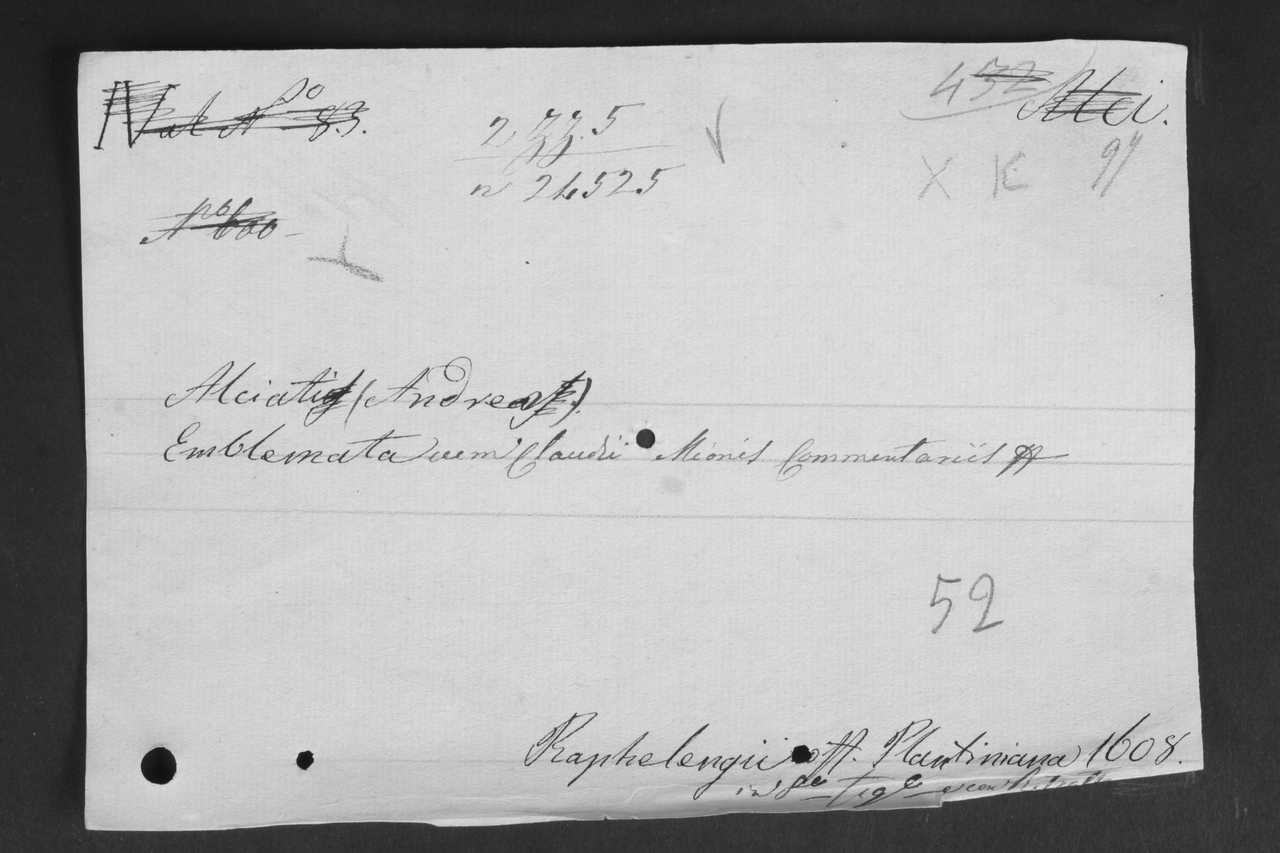 Nat N° 83.
2 77.5
n 24525
452
Alci.
X K 97
N° 600
Alciati (Andrea).
Emblemata cum Claudii Minois Commentariis
52
Raphelengii off. Plantiniana 1608.
in 8°